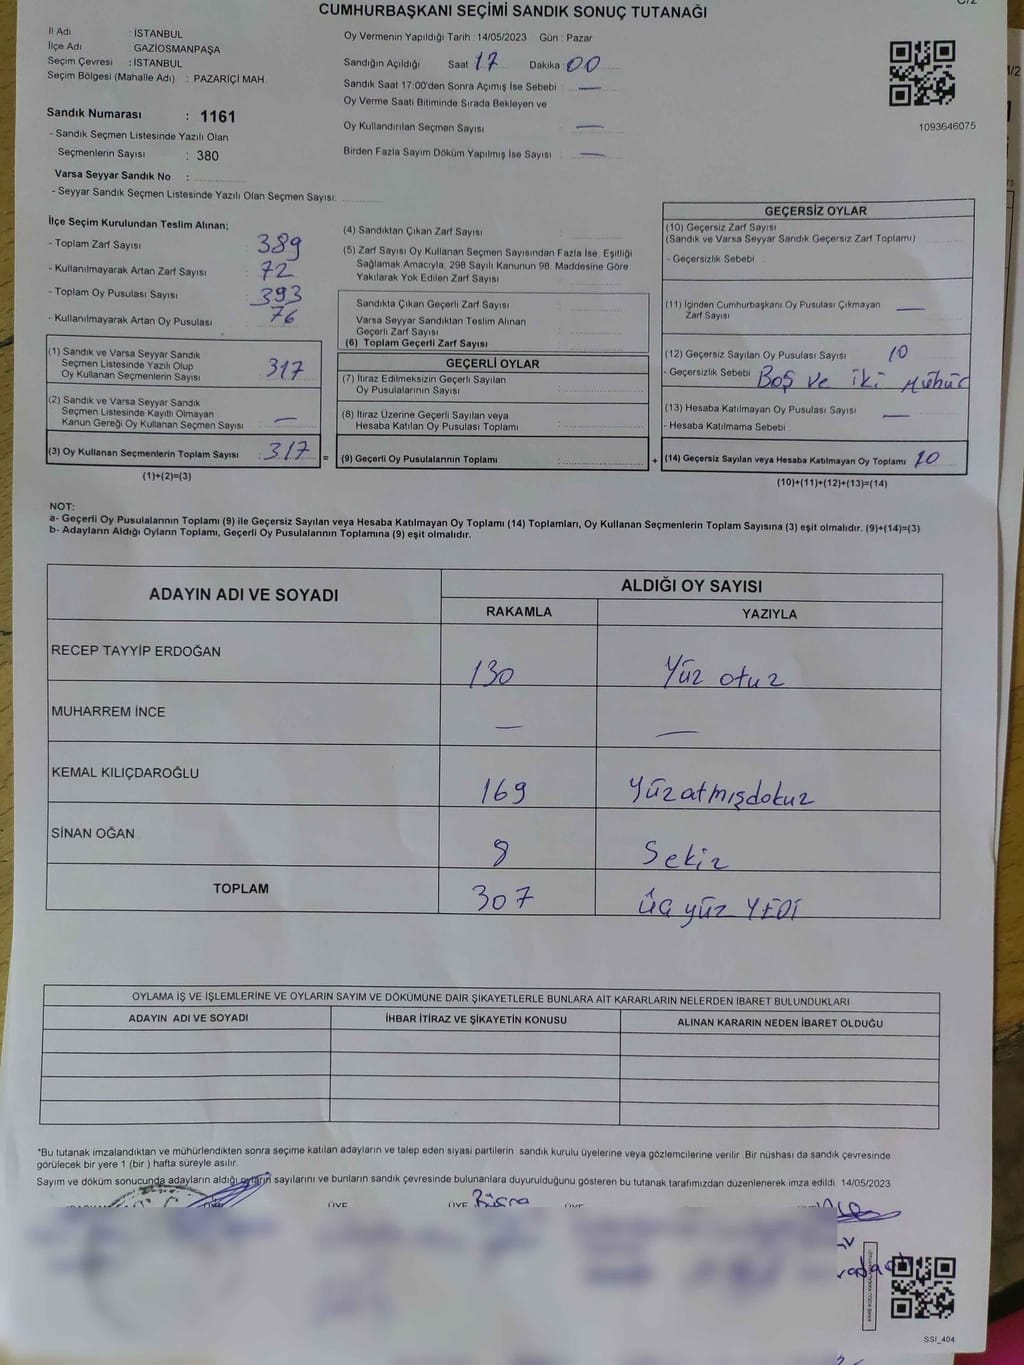 CUMHURBAŞKANI SEÇİMİ SANDIK SONUÇ TUTANAĞI
İl Adı : İSTANBUL
İlçe Adı GAZİOSMANPAŞA
Seçim Çevresi : İSTANBUL
Seçim Bölgesi (Mahalle Adı) : PAZARİÇİ MAH.
Sandık Numarası : 1161
- Sandık Seçmen Listesinde Yazılı Olan
Seçmenlerin Sayısı : 380
Varsa Seyyar Sandık No :
- Seyyar Sandık Seçmen Listesinde Yazılı Olan Seçmen Sayısı:
Oy Vermenin Yapıldığı Tarih : 14/05/2023 Gün : Pazar
Sandığın Açıldığı Saat 17 Dakika : 00
Sandık Saat 17:00'den Sonra Açımış İse Sebebi : —
Oy Verme Saati Bitiminde Sırada Bekleyen ve
Oy Kullandırılan Seçmen Sayısı : —
Birden Fazla Sayım Döküm Yapılmış İse Sayısı : —
1093646075
İlçe Seçim Kurulundan Teslim Alınan;
- Toplam Zarf Sayısı : 389
- Kullanılmayarak Artan Zarf Sayısı : 72
- Toplam Oy Pusulası Sayısı : 393
- Kullanılmayarak Artan Oy Pusulası : 76
(1) Sandık ve Varsa Seyyar Sandık
Seçmen Listesinde Yazılı Olup
Oy Kullanan Seçmenlerin Sayısı : 317
(2) Sandık ve Varsa Seyyar Sandık
Seçmen Listesinde Kayıtlı Olmayan
Kanun Gereği Oy Kullanan Seçmen Sayısı : —
(3) Oy Kullanan Seçmenlerin Toplam Sayısı : 317 =
(1)+(2)=(3)
(4) Sandıktan Çıkan Zarf Sayısı :
(5) Zarf Sayısı Oy Kullanan Seçmen Sayısından Fazla İse, Eşitliği
Sağlamak Amacıyla, 298 Sayılı Kanunun 98. Maddesine Göre
Yakılarak Yok Edilen Zarf Sayısı :
Sandıkta Çıkan Geçerli Zarf Sayısı :
Varsa Seyyar Sandıktan Teslim Alınan
Geçerli Zarf Sayısı :
(6) Toplam Geçerli Zarf Sayısı :
GEÇERLİ OYLAR
(7) İtiraz Edilmeksizin Geçerli Sayılan
Oy Pusulalarının Sayısı :
(8) İtiraz Üzerine Geçerli Sayılan veya
Hesaba Katılan Oy Pusulası Toplamı :
(9) Geçerli Oy Pusulalarının Toplamı : +
GEÇERSİZ OYLAR
(10) Geçersiz Zarf Sayısı
(Sandık ve Varsa Seyyar Sandık Geçersiz Zarf Toplamı) :
- Geçersizlik Sebebi :
(11) İçinden Cumhurbaşkanı Oy Pusulası Çıkmayan
Zarf Sayısı : —
(12) Geçersiz Sayılan Oy Pusulası Sayısı : 10
- Geçersizlik Sebebi : Boş ve iki mühür
(13) Hesaba Katılmayan Oy Pusulası Sayısı : —
- Hesaba Katılmama Sebebi :
(14) Geçersiz Sayılan veya Hesaba Katılmayan Oy Toplamı : 10
(10)+(11)+(12)+(13)=(14)
NOT:
a- Geçerli Oy Pusulalarının Toplamı (9) ile Geçersiz Sayılan veya Hesaba Katılmayan Oy Toplamı (14) Toplamları, Oy Kullanan Seçmenlerin Toplam Sayısına (3) eşit olmalıdır. (9)+(14)=(3)
b- Adayların Aldığı Oyların Toplamı, Geçerli Oy Pusulalarının Toplamına (9) eşit olmalıdır.
ADAYIN ADI VE SOYADI ALDIĞI OY SAYISI
RAKAMLA YAZIYLA
RECEP TAYYİP ERDOĞAN 130 Yüz otuz
MUHARREM İNCE — —
KEMAL KILIÇDAROĞLU 169 Yüzatmışdokuz
SİNAN OĞAN 8 Sekiz
TOPLAM 307 üç yüz YEDİ
OYLAMA İŞ VE İŞLEMLERİNE VE OYLARIN SAYIM VE DÖKÜMÜNE DAİR ŞİKAYETLERLE BUNLARA AİT KARARLARIN NELERDEN İBARET BULUNDUKLARI
ADAYIN ADI VE SOYADI İHBAR İTİRAZ VE ŞİKAYETİN KONUSU ALINAN KARARIN NEDEN İBARET OLDUĞU
*Bu tutanak imzalandıktan ve mühürlendikten sonra seçime katılan adayların ve talep eden siyasi partilerin sandık kurulu üyelerine veya gözlemcilerine verilir. Bir nüshası da sandık çevresinde
görülecek bir yere 1 (bir ) hafta süreyle asılır.
Sayım ve döküm sonucunda adayların aldığı oyların sayılarını ve bunların sandık çevresinde bulunanlara duyurulduğunu gösteren bu tutanak tarafımızdan düzenlenerek imza edildi. 14/05/2023
ÜYE ÜYE Büşra ÜYE
SSI_404